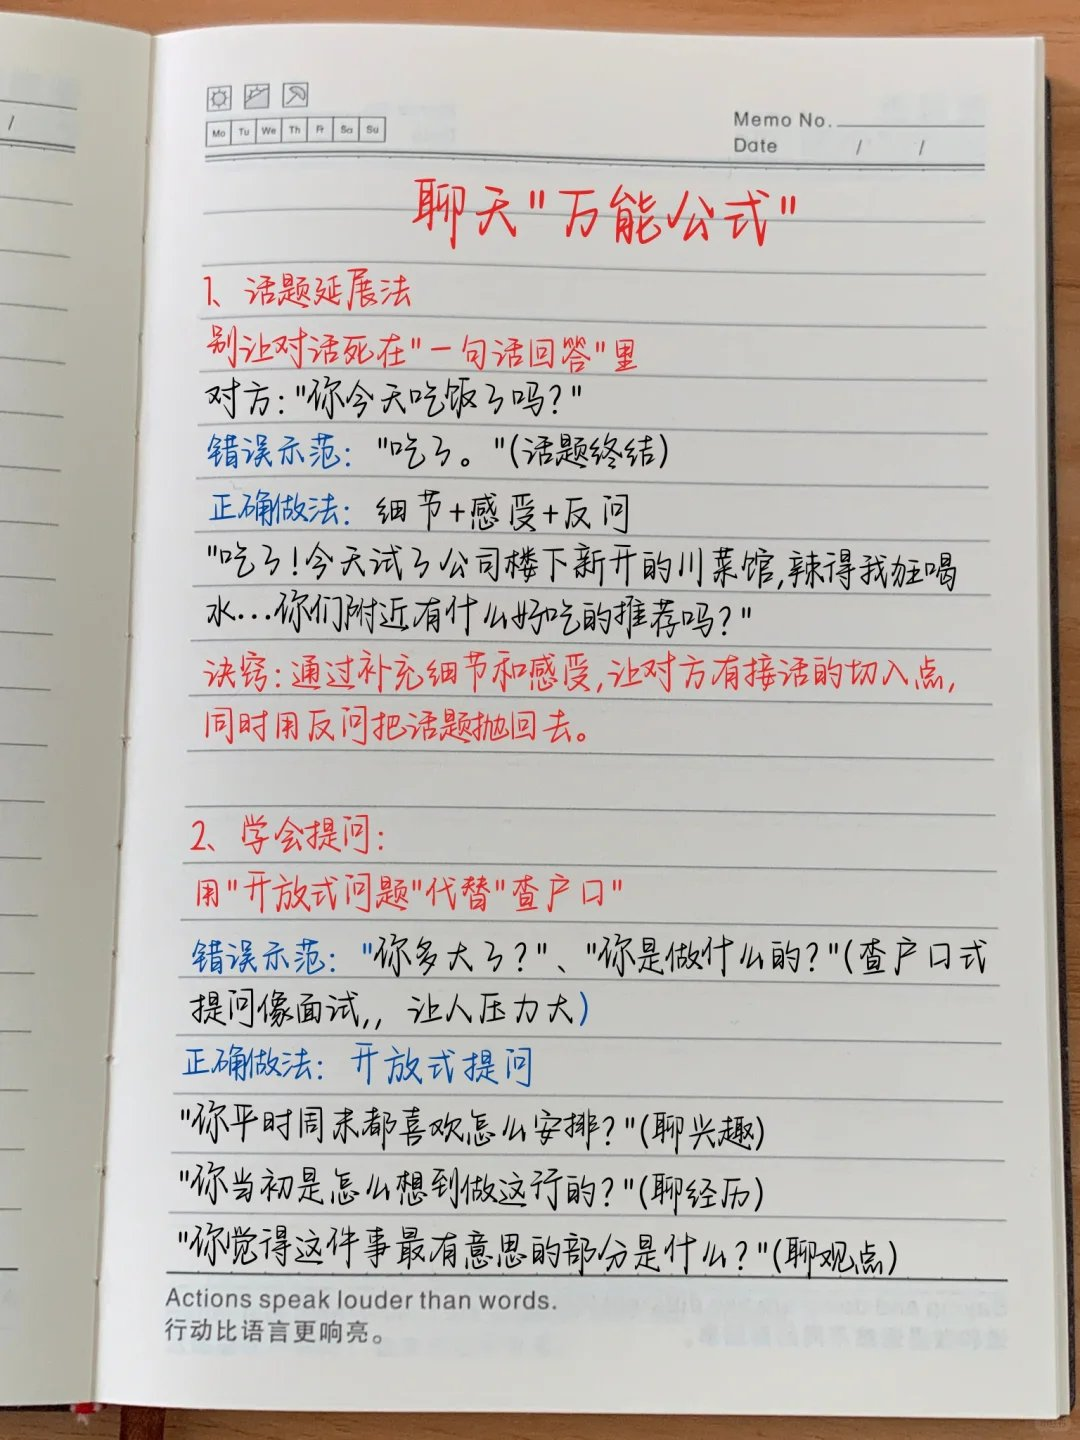 Mo Tu We Th Fr Sa Su
Memo No.
Date / /
聊天"万能公式"
1、话题延展法
别让对话死在"一句话回答"里
对方:"你今天吃饭了吗?"
错误示范: "吃了。"(话题终结)
正确做法: 细节+感受+反问
"吃了!今天试了公司楼下新开的川菜馆,辣得我狂喝
水...你们附近有什么好吃的推荐吗?"
诀窍:通过补充细节和感受,让对方有接话的切入点,
同时用反问把话题抛回去。
2、学会提问:
用"开放式问题"代替"查户口"
错误示范: "你多大了?"、"你是做什么的?"(查户口式
提问像面试,, 让人压力大)
正确做法: 开放式提问
"你平时周末都喜欢怎么安排?"(聊兴趣)
"你当初是怎么想到做这行的?"(聊经历)
"你觉得这件事最有意思的部分是什么?"(聊观点)
Actions speak louder than words.
行动比语言更响亮。